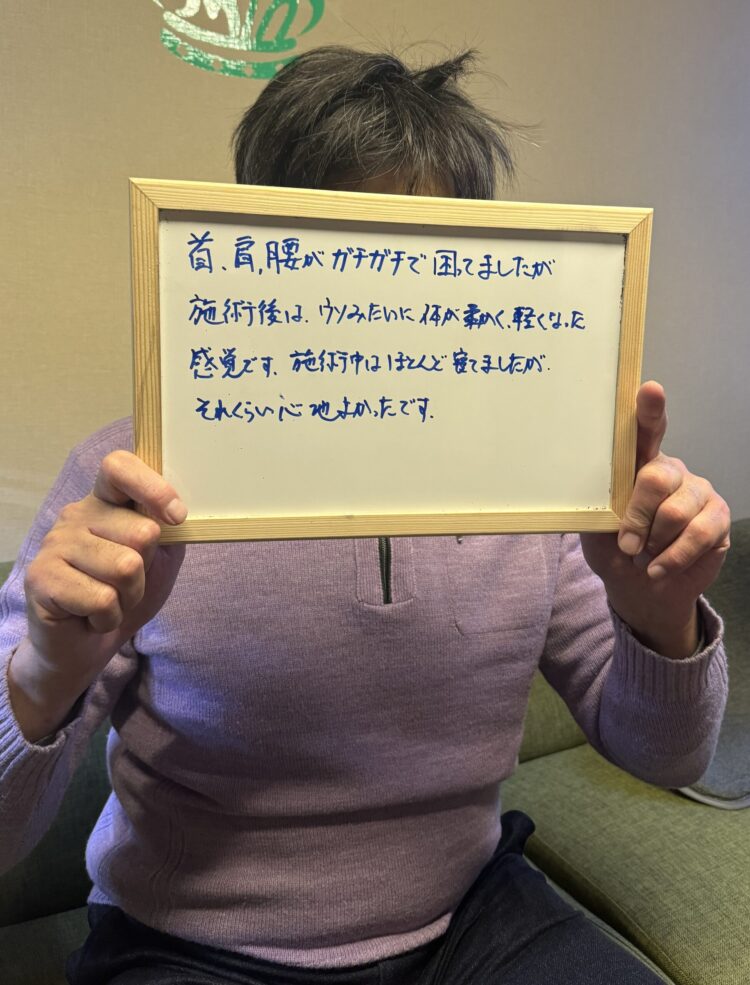 首、肩、腰がガチガチで困ってましたが
施術後は、ウソみたいに体が柔かく、軽くなった
感覚です。施術中はほとんど寝てましたが、
それくらい心地よかったです。